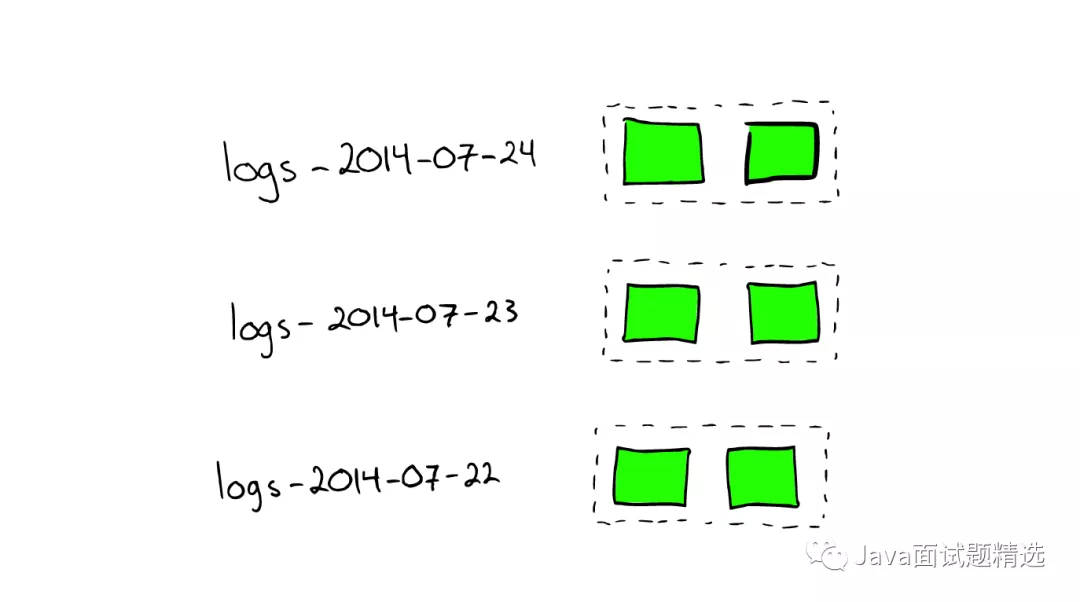 logs-2014-07-24
logs-2014-07-23
logs-2014-07-22
Java面试题精选